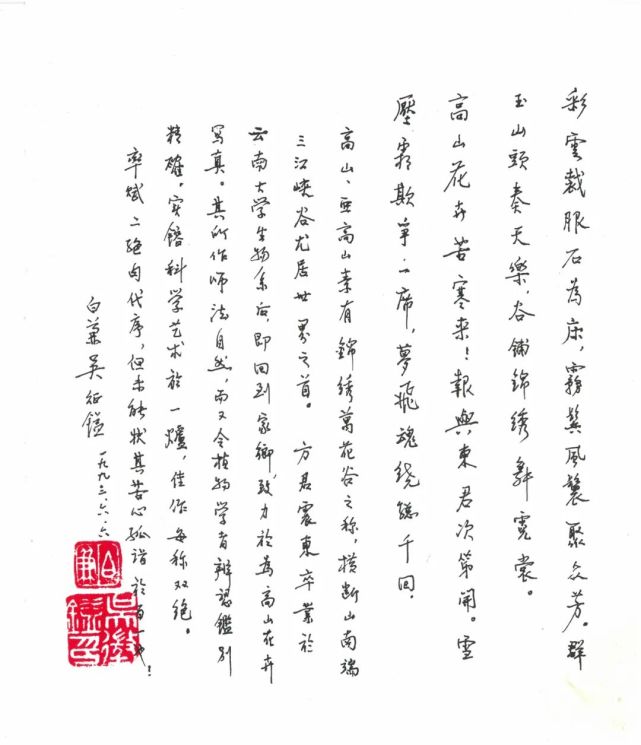 彩雲裁服石為床，霧鬢風鬟聚众芳。群
玉山頭奏天樂，谷铺錦绣舞霓裳。
高山花卉苦寒来！報與東君次第開。雪
壓霜欺争一席，夢飛魂绕千回．
高山、亜高山素有錦綉萬花谷之称，横断山南端
三江峡谷尤居世界之首。方君震東卒業於
云南大学生物系后，即回到家鄉，致力於為高山花卉
写真。其所作师法自然，而又令植物学者辨認鑑别
精確，实鎔科学艺术於一爐，佳作每称双绝。
率赋二绝句代序，但未能状其苦心孤诣於万一也！
白兼吴征鎰 一九九三.六.六
白兼